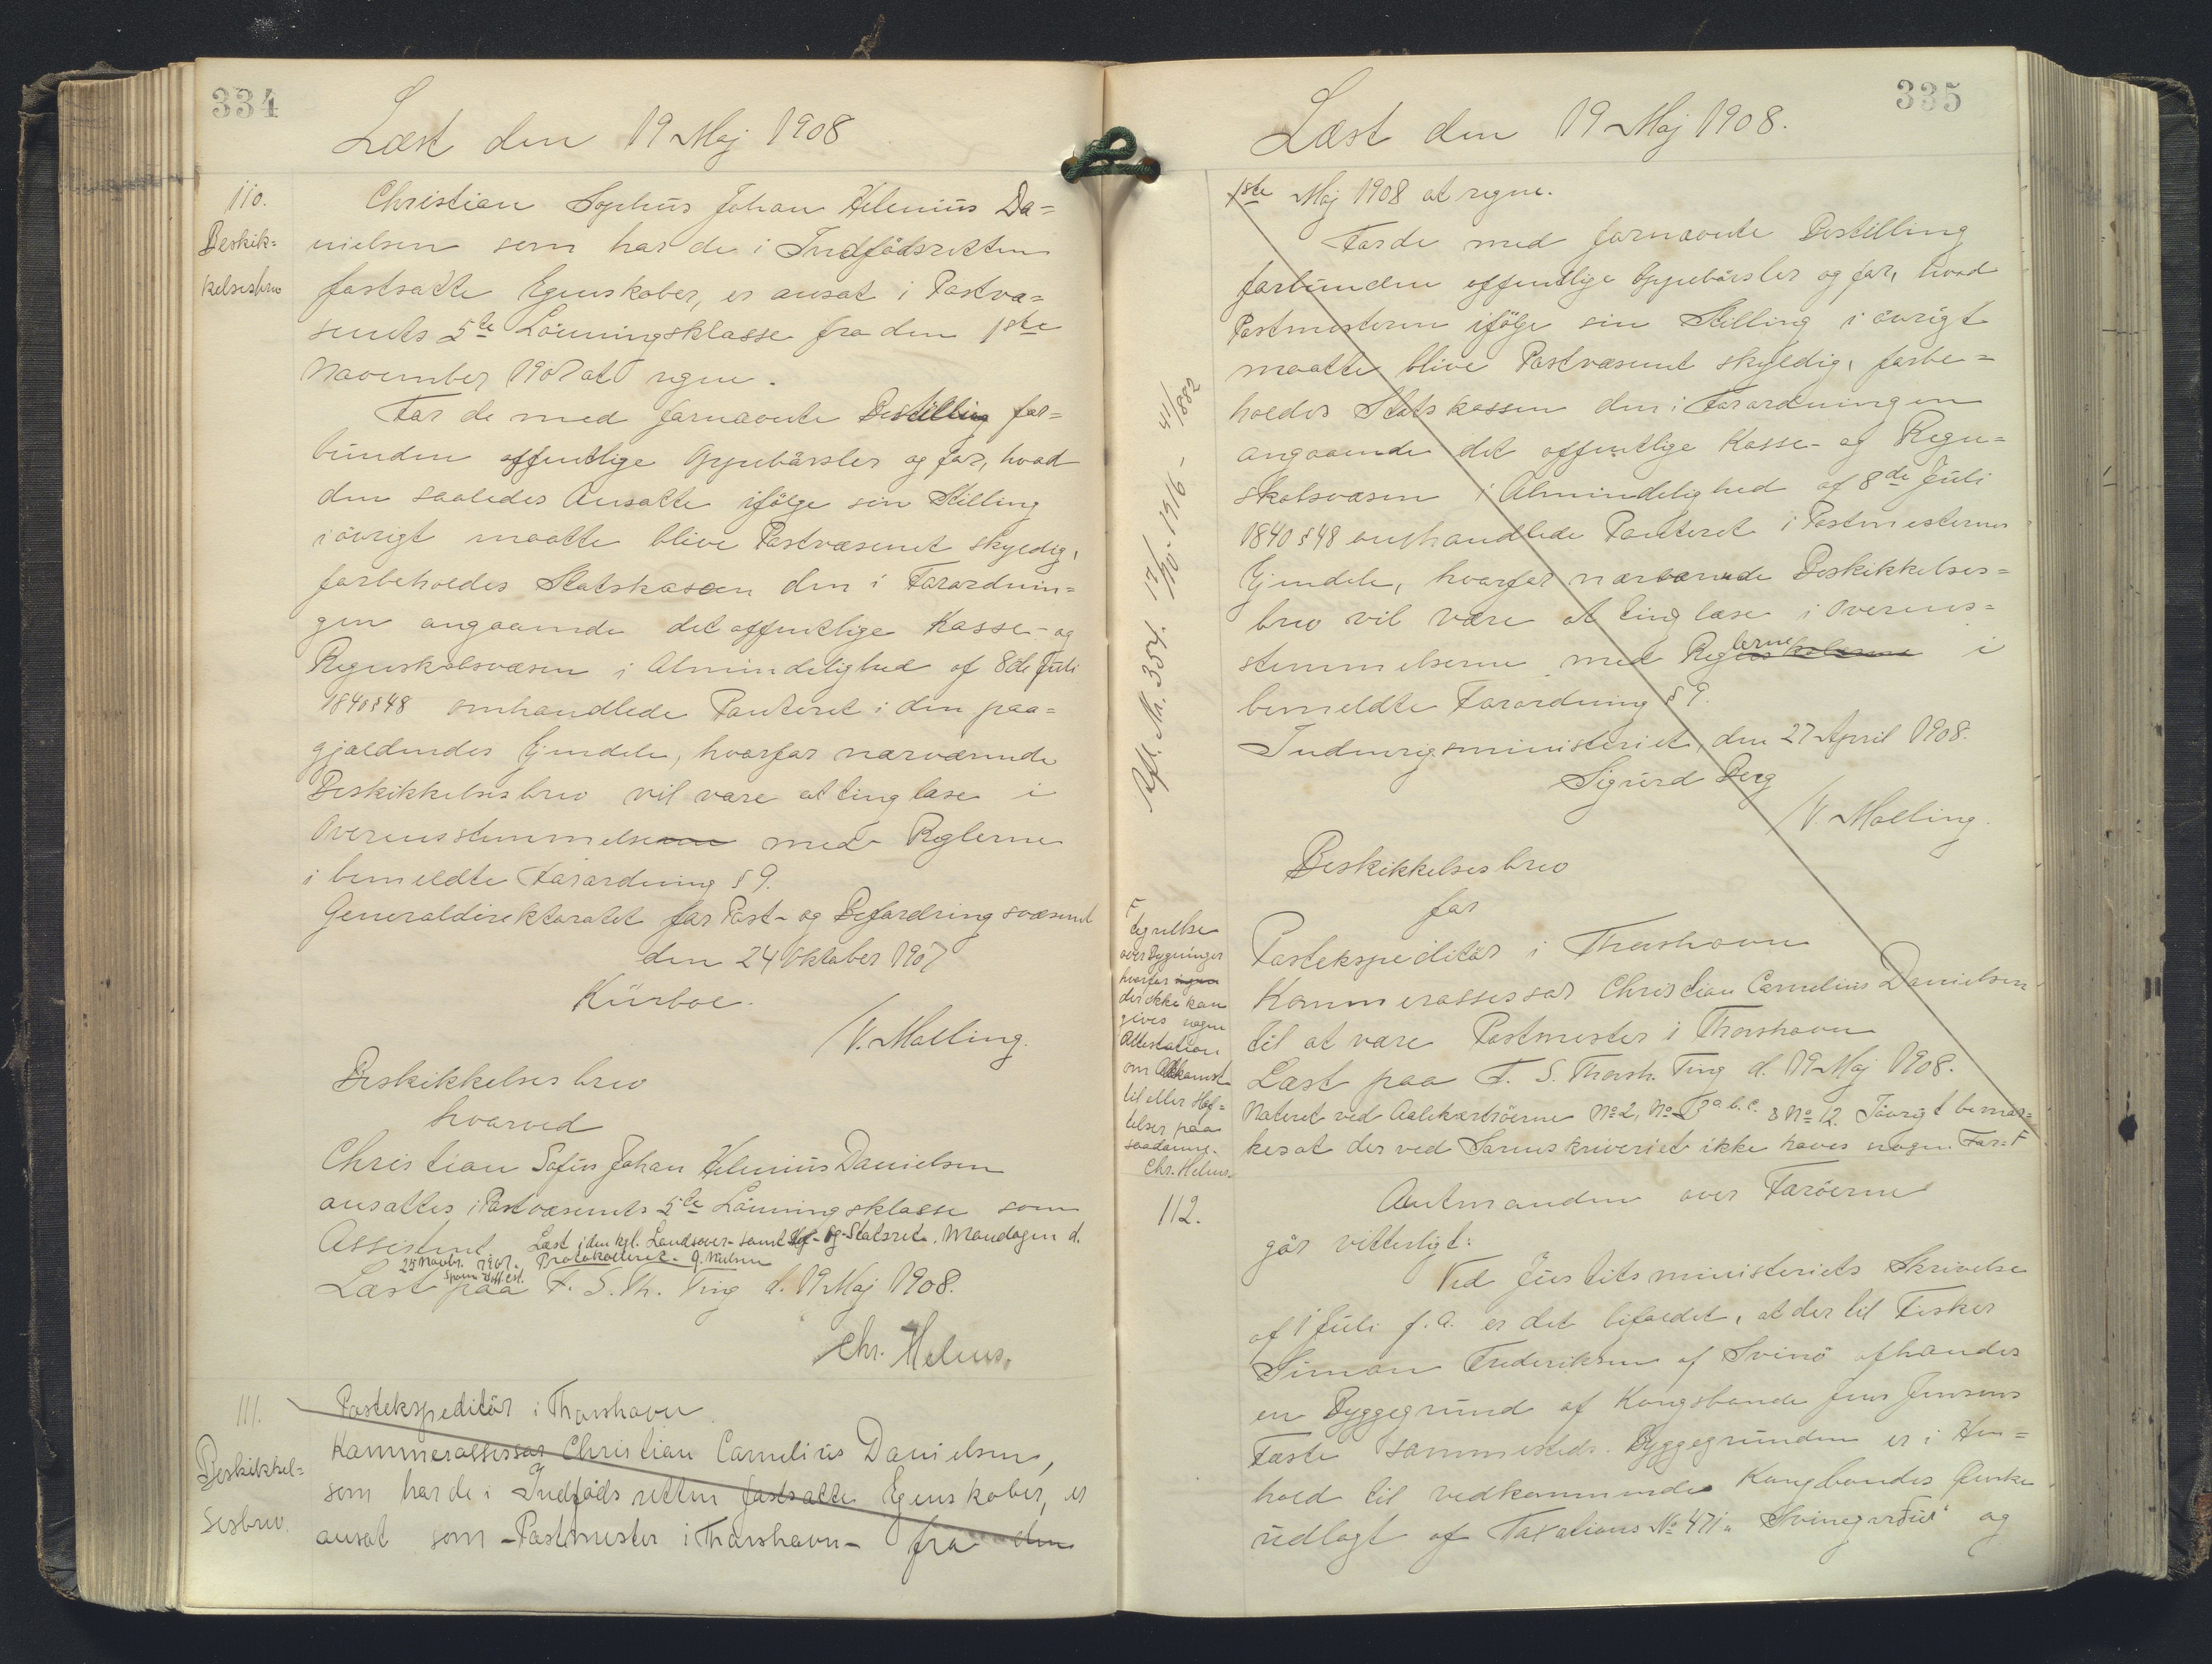 334
Læst den 19 Maj 1908
110.
Beskik=
kelsesbrev
Christian Sophus Johan Helenius Da=
nielsen som har de i Indfødsretten
fastsatte Egenskaber, er ansat i Postvæ=
senets 5te Lønningsklasse fra den 1ste
November 1907 at regne.
For de med fornævnte Bestilling for=
bunden offentlige Oppebørsler og for, hvad
den saaledes Ansatte ifølge sin Stilling
i øvrigt maatte blive Postvæsenet skyldig,
forbeholdes Statskassen den i Forordnin=
gen angaaende det offentlige Kasse- og
Regnskabsvæsen i Almindelighed af 8de Juli
1840 § 48 omhandlede Panteret i den paa=
gjældendes Ejendele, hvorfor nærværende
Beskikkelsesbrev vil være at tinglæse i
Overensstemmelse med Reglerne
i bemeldte Forordning § 9.
Generaldirektoratet for Post- og Befordringsvæsenet
den 24 Oktober 1907
Kiørboe.
/V. Malling.
Beskikkelsesbrev
hvorved
Christian Sofus Johan Helenius Danielsen
ansættes i Postvæsenets 5te Lønningsklasse som
Assistent
Læst i den kgl. Landsover- samt Hof- og Stadsret. Mandagen d.
25 Novbr. 1907. Protokolleret. J. Nielsen
Læst paa F. S. Th. Ting d. 19 Maj 1908.
Chr. Helms.
111.
Beskikkel=
sesbrev.
Postekspeditør i Thorshavn
Kammerassessor Christian Cornelius Danielsen,
som har de i Indfødsretten fastsatte Egenskaber, er
ansat som -Postmester i Thorshavn- fra den
335
Læst den 19 Maj 1908.
1ste Maj 1908 at regne.
For de med fornævnte Bestilling
forbunden offentlige Oppebørsler og for, hvad
Postmesteren ifølge sin Stilling i øvrigt
maatte blive Postvæsenet skyldig, forbe=
holdes Statskassen den i Forordningen
angaaende det offentlige Kasse- og Regn=
skabsvæsen i Almindelighed af 8de Juli
1840 § 48 omhandlede Panteret i Postmesterens
Ejendele, hvorfor nærværende Beskikkelses=
brev vil være at tinglæse i Overens=
stemmelserne med Reglerne i
bemeldte Forordning § 9.
Indenrigsministeriet, den 27 April 1908.
Sigurd Berg
/V. Malling.
Beskikkelsesbrev
for
Postekspeditør i Thorshavn
Kammerassessor Christian Cornelius Danielsen
til at være Postmester i Thorshavn
Læst paa F. S. Thorsh. Ting d. 19 Maj 1908.
Noteret ved Aalekærtrøerne No 2, No 3 a. b. c. & No 12. Iøvrigt bemær=
kes at der ved Sorenskriveriet ikke haves nogen For= F
F
tegnelse
over Bygninger
hvorfor
der ikke kan
gives nogen
Attestation
om Adkomst
til eller Hæf=
telser paa
saadanne.
Chr. Helms.
112.
Amtmanden over Færøerne
gör vitterligt:
Ved Justitsministeriets Skrivelse
af 1 Juli f. A. er det bifaldet, at der til Fisker
Simon Frederiksen af Svinø afhændes
en Byggegrund af Kongsbonde Jens Jensens
Fæste sammesteds. Byggegrunden er i Hen=
hold til vedkommende Kongbondes Ønske
udlagt af Taxations No 471a Svinegardur og